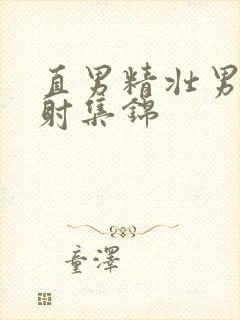 直男精壮男
射集锦
童泽